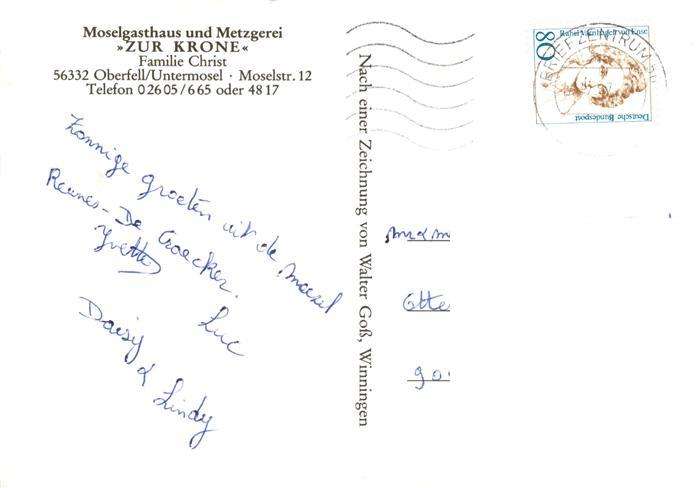 Moselgasthaus und Metzgerei
»ZUR KRONE«
Familie Christ
56332 Oberfell/Untermosel · Moselstr. 12
Telefon 02605/665 oder 4817
Zonnige groeten uit de moezel
Reunes - De Craecker.
Yvette Luc
Daisy & Lindy
Nach einer Zeichnung von Walter Goß, Winningen
80
Rahel Varnhagen von Ense
Deutsche Bundespost
BRIEFZENTRUM
mam
Otte
90